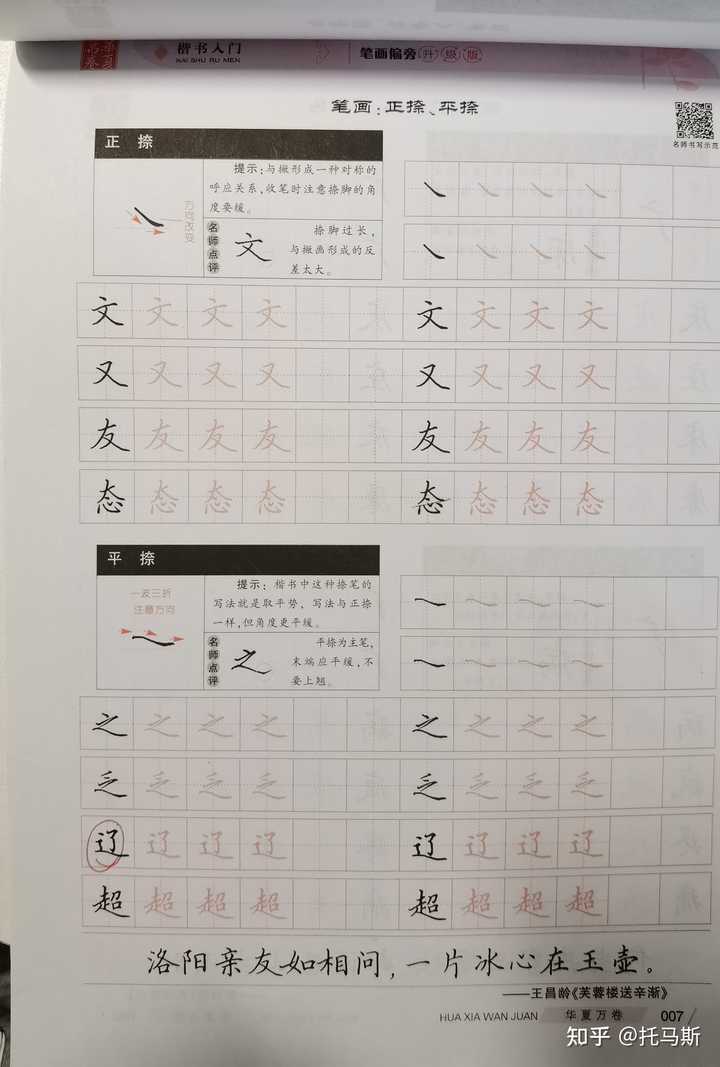 华夏万卷 楷书入门 笔画偏旁升级版
KAI SHU RU MEN
笔画：正捺、平捺
名师书写示范
正 捺
提示：与撇形成一种对称的
呼应关系，收笔时注意捺脚的角
度要缓。
方向改变
名师点评
文
捺脚过长，
与撇画形成的反
差太大。
文 文 文 文 文 文 文 文
又 又 又 又 又 又 又 又
友 友 友 友 友 友 友 友
态 态 态 态 态 态 态 态
平 捺
一波三折
注意方向
提示：楷书中这种捺笔的
写法就是取平势，写法与正捺
一样，但角度更平缓。
名师点评
之
平捺为主笔，
末端应平缓，不
要上翘。
之 之 之 之 之 之 之 之
乏 乏 乏 乏 乏 乏 乏 乏
辽 辽 辽 辽 辽 辽 辽 辽
超 超 超 超 超 超 超 超
洛阳亲友如相问，一片冰心在玉壶。
——王昌龄《芙蓉楼送辛渐》
HUA XIA WAN JUAN 华夏万卷 007
知乎 @托马斯